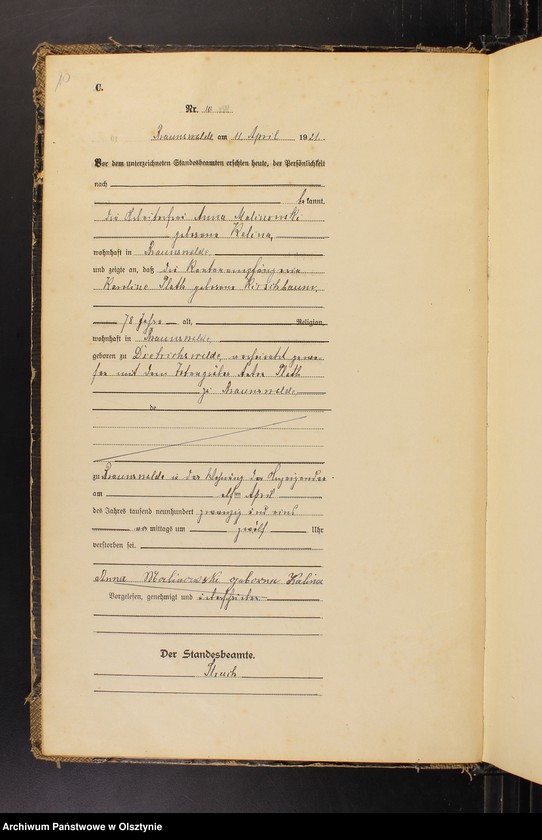 C.
Nr. 10
Braunswalde am 11 April 1921.
Vor dem unterzeichneten Standesbeamten erschien heute, der Persönlichkeit
nach
be kannt,
die Arbeiterfrau Anna Malinowski
geborene Kalina,
wohnhaft in Braunswalde,
und zeigte an, daß die Rentenempfängerin
Karoline Plath geborene Kirschbaum,
78 Jahre alt, Religion,
wohnhaft in Braunswalde,
geboren zu Dietrichswalde, verheiratet gewe-
sen mit dem Plath
zu Braunswalde
de
zu Braunswalde in der Wohnung der Anzeigenden
am elften April
des Jahres tausend neunhundert zwanzig und eins
vor mittags um zwölf Uhr
verstorben sei.
Anna Malinowski geborne Kalina
Vorgelesen, genehmigt und unterschrieben
Der Standesbeamte.
Archiwum Państwowe w Olsztynie